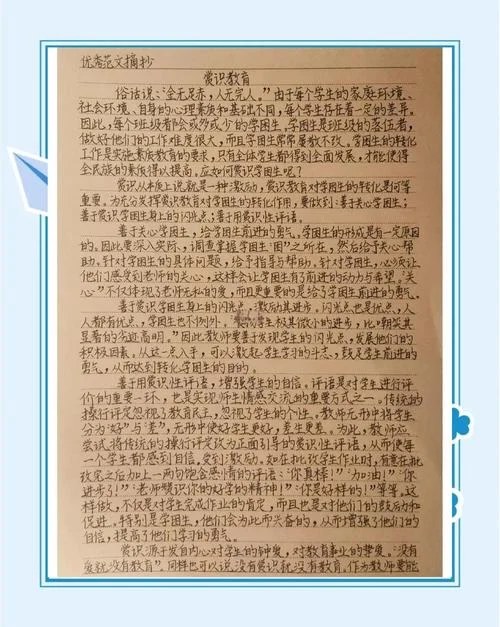 优秀范文摘抄
赏识教育
俗话说:“金无足赤,人无完人。”由于每个学生的家庭环境、
社会环境、自身的心理素质和基础不同,每个学生存在着一定的差异。
因此,每个班级者都会或多或少的学困生。学困生是班级的落伍者,
做好他们的工作难度很大,而且学困生常常屡教不改。学困生的转化
工作是实施素质教育的要求,只有全体学生都得到全面发展,才能使得
全民族的素质得以提高。应如何赏识学困生呢?
赏识从本质上说就是一种激励,赏识教育对学困生的转化是何等
重要。为充分发挥赏识教育对学困生的转化作用,要做到:善于关心学困生;
善于赏识学困生身上的闪光点;善于用赏识性评语。
善于关心学困生,给学困生前进的勇气。学困生的形成是有一定原因
的。因此要深入实际,调查掌握学困生“困”之所在,然后给予关心帮
助。针对学困生的具体问题,给予指导与帮助。针对学困生,心须让
他们感受到老师的关心,这样会让学困生有了前进的动力与希望。“关
心”不仅体现了老师无私的爱,而且更重要的是给了学困生前进的勇气。
善于赏识学困生身上的闪光点,激励其进步。闪光点也是优点,人
人都有优点,学困生也不例外。“表扬学生极其微小的进步,比嘲笑其
显著的劣迹高明。”因此教师要善于发现学生的闪光点,发展他们的
积极因素。从这一点入手,可以激起学生学习的斗志,鼓足学生前进的
勇气,从而达到转化学困生的目的。
善于用赏识性评语,增强学生的自信。评语是对学生进行评
价的重要一环,也是实现师生情感交流的重要方式之一。传统的
操行评定忽视了教育民主,忽视了学生的个性。教师无形中将学生
分为“好”与“差”,无形中使好学生更好,差生更差。为此,教师应
尝试将传统的操行评定改为正面引导的赏识性评语,从而使每
一个学生都感到自信,受到激励。如在批改学生作业时,有意在批
改完之后加上一两句饱含感情的评语:“你真棒!”“加油!”“你
进步了!”“老师赞识你的好学的精神!”“你是好样的!”等等。这
样做,不仅是对学生完成作业的肯定,而且也是对他们的鼓励和
促进。特别是学困生,他们会为此而兴奋的,从而增强了他们的
自信,提高了他们学习的勇气。
赏识源于发自内心对学生的钟爱,对教育事业的挚爱。“没有
爱就没有教育”,同样也可以说,没有赏识就没有教育。作为教师要能